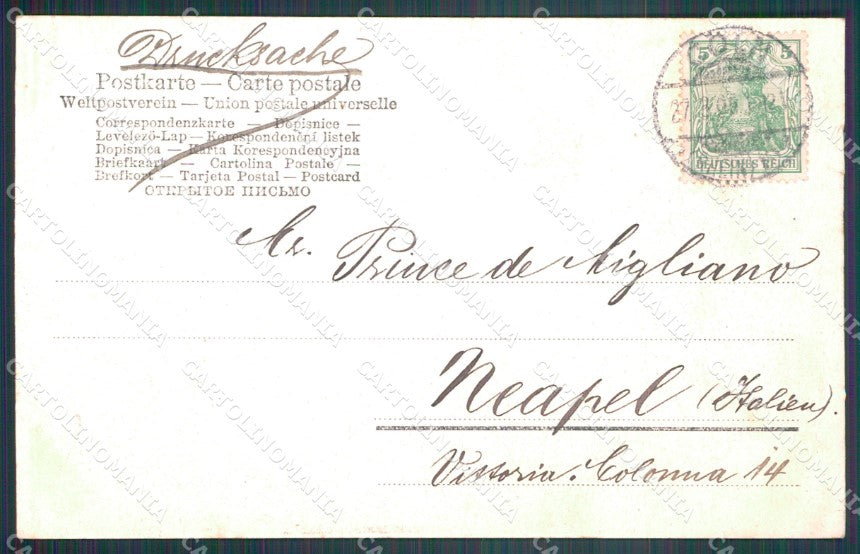 Drucksache
Postkarte — Carte postale
Weltpostverein — Union postale universelle
Correspondenzkarte — Dopisnice —
Levelező-Lap — Korespondenční listek
Dopisnica — Karta Korespondencyjna
Briefkaart — Cartolina Postale —
Brefkort — Tarjeta Postal — Postcard
ОТКРЫТОЕ ПИСЬМО
5 5
DEUTSCHES REICH
Mr. Prince de Migliano
Neapel (Italien).
Vittoria. Colonna 14
CARTOLINOMANIA